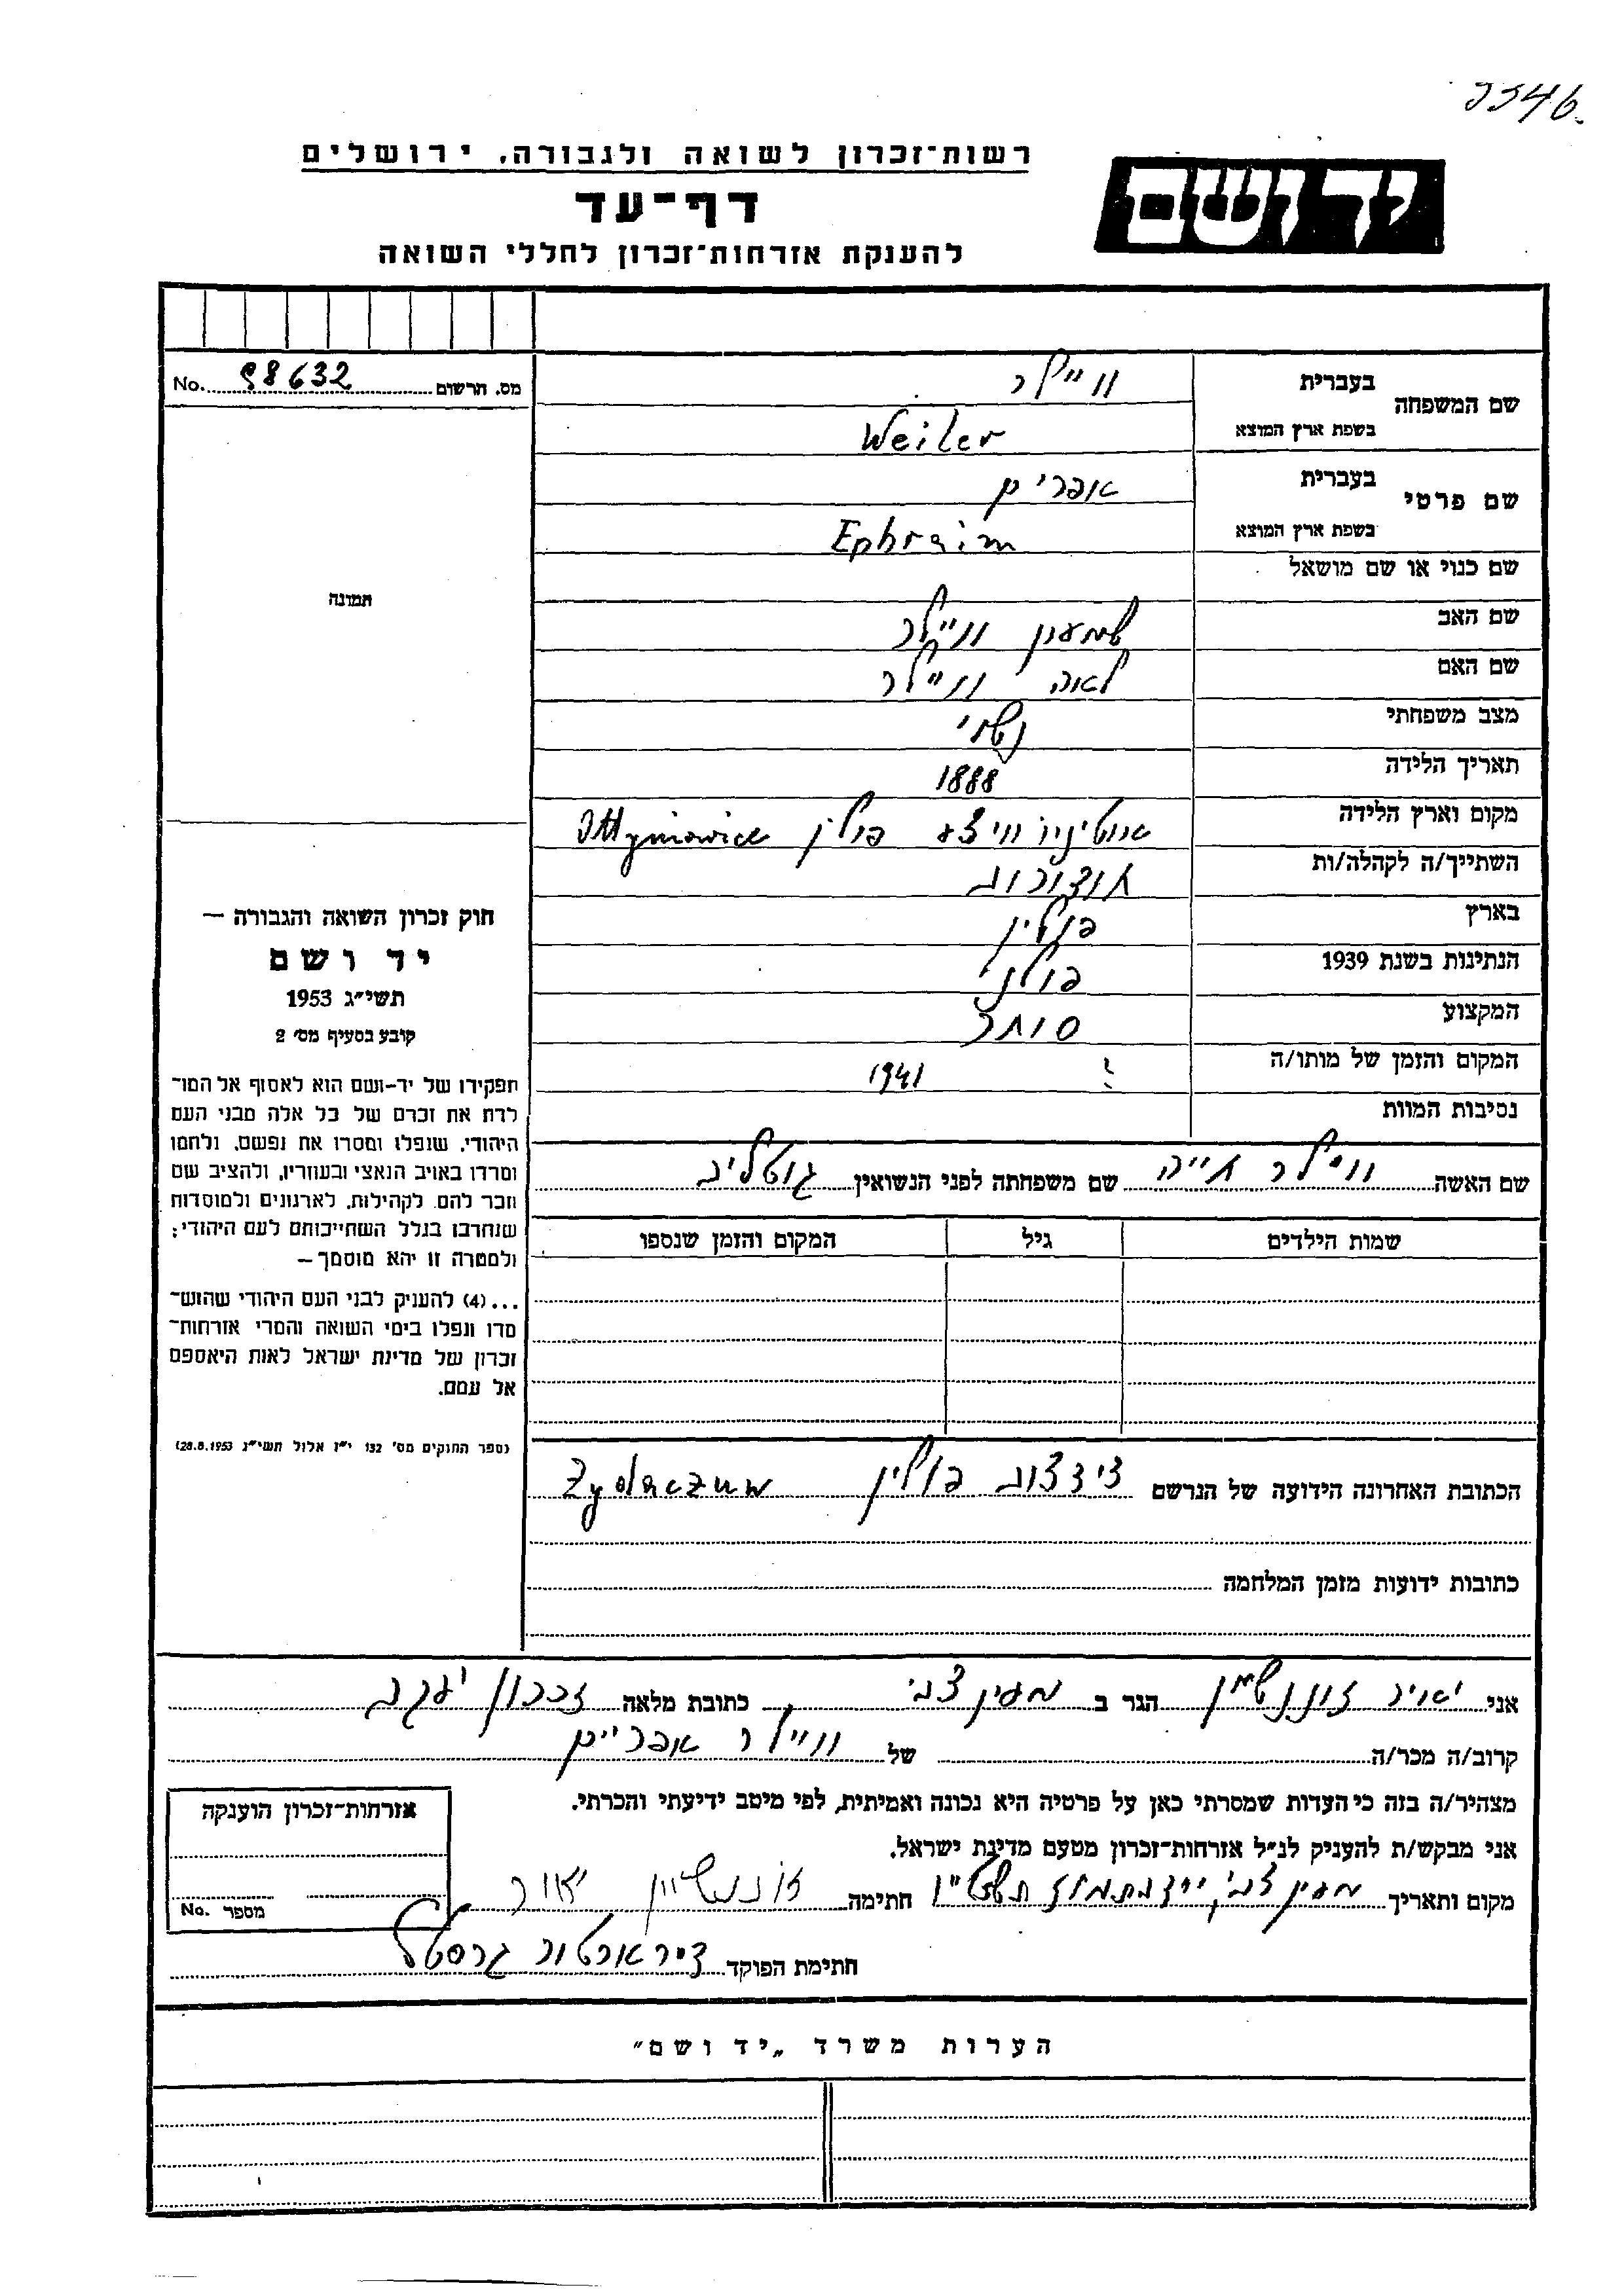 3346.
יד ושם
רשות־זכרון לשואה ולגבורה, ירושלים
דף־עד
להענקת אזרחות־זכרון לחללי השואה
מס. הרשום 98632 No.
שם המשפחה בעברית ווײלר
בשפת ארץ המוצא Weiler
שם פרטי בעברית אפרים
בשפת ארץ המוצא Ephraim
שם כנוי או שם מושאל
שם האב שמעון ווײלר
שם האם לאה ווײלר
מצב משפחתי נשוי
תאריך הלידה 1888
מקום וארץ הלידה פולין
השתייך/ה לקהלה/ות
בארץ פולין
הנתינות בשנת 1939 פולני
המקצוע סוחר
המקום והזמן של מותו/ה ? 1941
נסיבות המוות
שם האשה ווײלר חייה שם משפחתה לפני הנשואין גוטליב
שמות הילדים גיל המקום והזמן שנספו
הכתובת האחרונה הידועה של הנרשם פולין Zydaczuw
כתובות ידועות מזמן המלחמה
תמונה
חוק זכרון השואה והגבורה –
יד ושם
תשי״ג 1953
קובע בסעיף מס׳ 2
תפקידו של יד-ושם הוא לאסוף אל המו־
לדת את זכרם של כל אלה מבני העם
היהודי, שנפלו ומסרו את נפשם, נלחמו
ומרדו באויב הנאצי ובעוזריו, ולהציב שם
וזכר להם, לקהילות, לארגונים ולמוסדות
שנחרבו בגלל השתייכותם לעם היהודי;
ולמטרה זו יהא מוסמך –
...(4) להעניק לבני העם היהודי שהוש־
מדו ונפלו בימי השואה והמרי אזרחות־
זכרון של מדינת ישראל לאות היאספם
אל עמם.
(ספר החוקים מס׳ 132 י״ז אלול תשי״ג 28.8.1953)
אני יאיר זוננשיין הגר ב מעין צבי, כתובת מלאה זכרון יעקב
קרוב/ה מכר/ה של ווײלר אפריים
מצהיר/ה בזה כי העדות שמסרתי כאן על פרטיה היא נכונה ואמיתית, לפי מיטב ידיעתי והכרתי.
אני מבקש/ת להעניק לנ״ל אזרחות־זכרון מטעם מדינת ישראל.
מקום ותאריך מעין צבי, בתמוז תשט״ו חתימה זוננשיין יאיר
חתימת הפוקד ארטור גרסטל
אזרחות־זכרון הוענקה
מספר No.
הערות משרד „יד ושם״